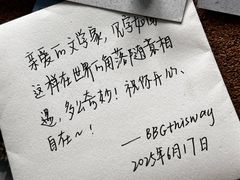 亲爱的文学家，见字如面
这样在世界的角落随真相
遇，多么奇妙！祝你开心、
自在～！
—— BBGthisway
2025年6月17日